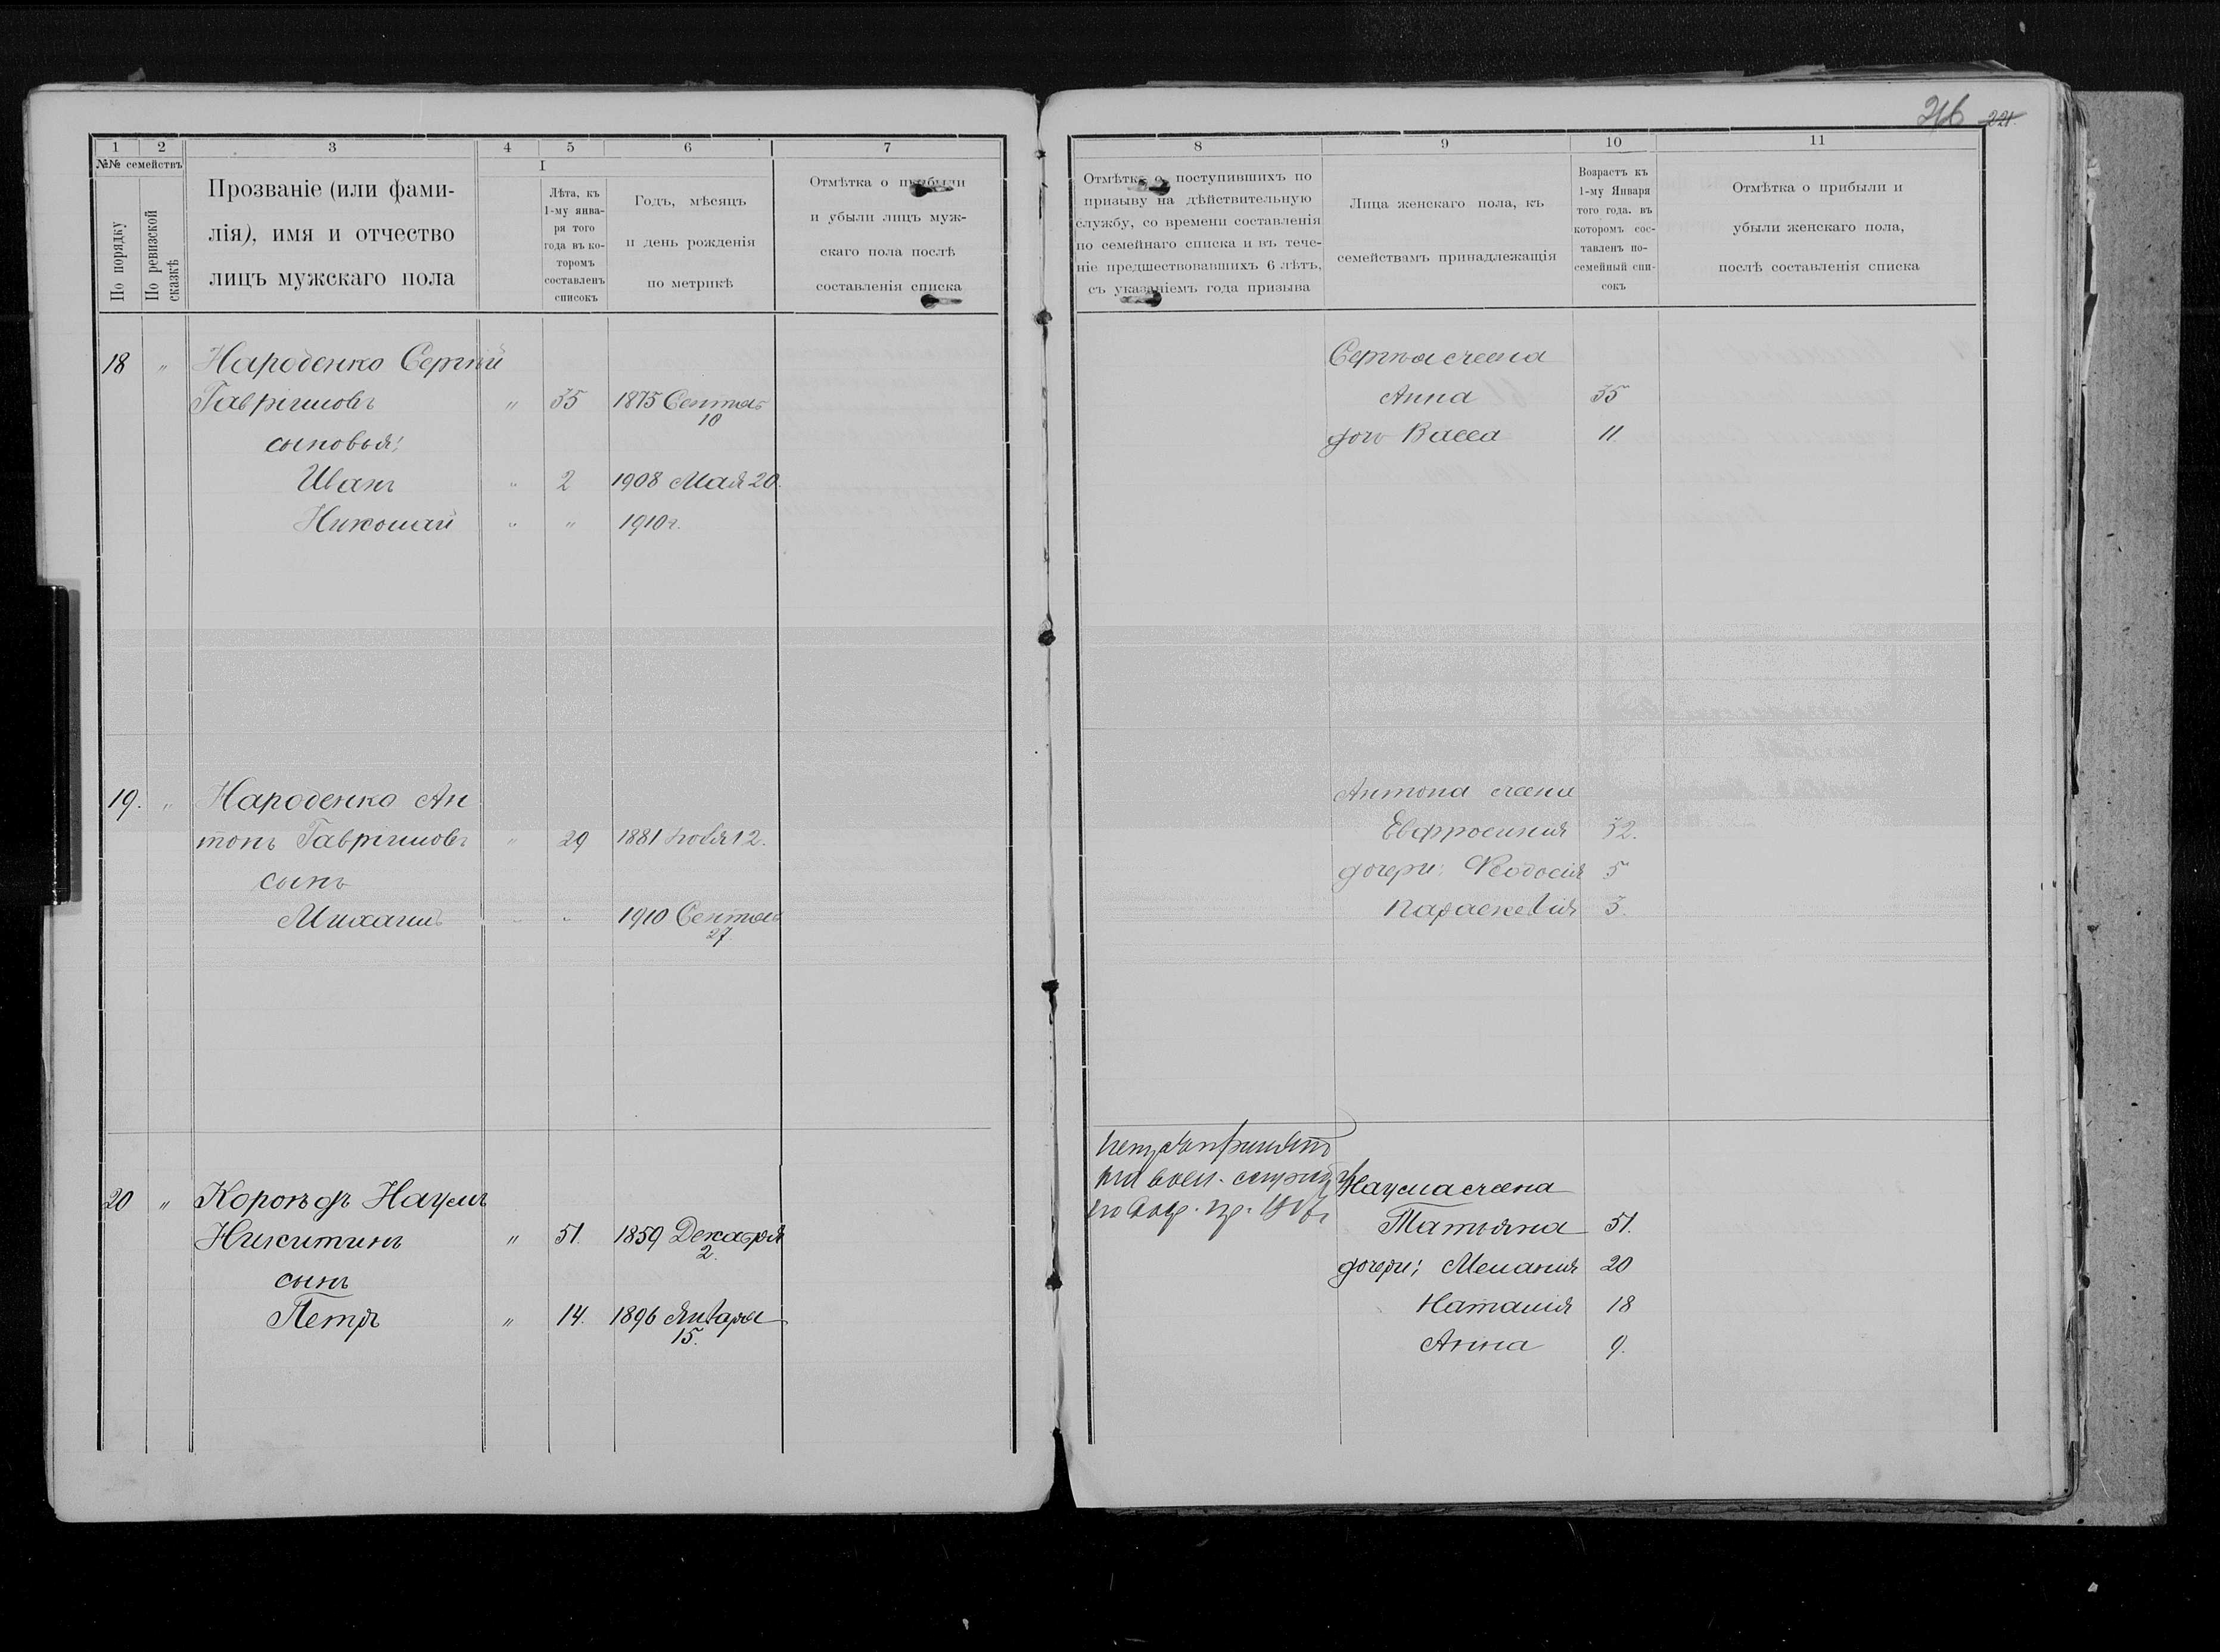 26 221.
1 2 3 4 5 6 7
№№ семействъ
По порядку
По ревизской сказкѣ
Прозваніе (или фами-
лія), имя и отчество
лицъ мужскаго пола
I
Лѣта, къ
1-му янва-
ря того
года въ ко-
торомъ
составленъ
списокъ
Годъ, мѣсяцъ
и день рожденія
по метрикѣ
Отмѣтка о прибыли
и убыли лицъ муж-
скаго пола послѣ
составленія списка
18 " Народенко Сергѣй
Гавріиловъ " 35 1875 Сентяб
10
сыновья:
Иванъ " 2 1908 Мая 20.
Николай " " 1910 г.
19. " Народенко Ан
тонъ Гавріиловъ " 29 1881 Ноября 12.
сынъ
Михаилъ " " 1910 Сентяб
27.
20 " Наумъ
Никитинъ " 51. 1859 Декабря
2.
сынъ
Петръ " 14. 1896 Января
15.
8 9 10 11
Отмѣтка о поступившихъ по
призыву на дѣйствительную
службу, со времени составленія
по семейнаго списка и въ тече-
ніе предшествовавшихъ 6 лѣтъ,
съ указаніемъ года призыва
Лица женскаго пола, къ
семействамъ принадлежащія
Возрастъ къ
1-му Января
того года. въ
которомъ сос-
тавленъ по-
семейный спи-
сокъ
Отмѣтка о прибыли и
убыли женскаго пола,
послѣ составленія списка
Сергѣя жена
Анна 35
дочь Васса 11
Антона жена
Евфросинія 32.
дочери: Феодосія 5
Параскевія 3.
Наума жена
Татьяна 51.
дочери; Меланія 20
Наталія 18
Анна 9.